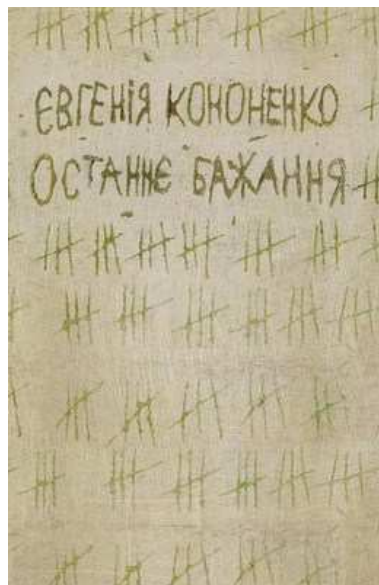 ЄВГЕНІЯ КОНОНЕНКО
ОСТАННЄ БАЖАННЯ